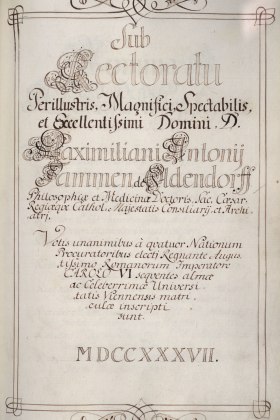 Sub
Rectoratu
Perillustris, Magnifici, Spectabilis,
et Excellentissimi Domini D.
Maximiliani Antonij
Dammen de Oldendorff
Philosophiæ et Medicinæ Doctoris Sac. Cæsar.
Regiæque Cathol. Majestatis Consiliarij, et Archi
atri,
Votis unanimibus à quatuor Nationum
Procuratoribus electi Regnante Augus
tissimo Romanorum Imperatore
CAROLO VI sequentes almæ
ac Celeberrimæ Universi
tatis Viennensis matri
culæ inscripti
sunt.
MDCCXXXVII.